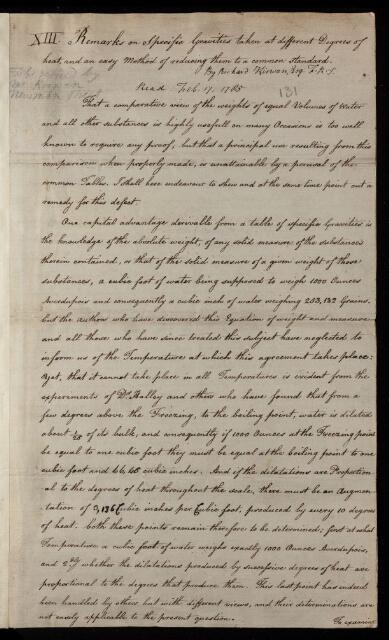 XIII. Remarks on Specific Gravities taken at different Degrees of
heat, and an easy Method of reducing them to a common Standard.
By Richard Kirwan, Esq. F.R.S.
Read Feb. 17. 1785
131
That a comparative view of the weights of equal Volumes of Water
and all other substances is highly usefull on many Occasions is too well
known to require any proof, but that a principal use resulting from this
comparison when properly made, is unattainable by a perusal of the
common Tables. I shall here endeavour to shew and at the same time point out a
remedy for this defect.
One capital advantage derivable from a table of specific Gravities is
the knowledge of the absolute weight, of any solid measure of the substances
therein contained, or that of the solid measure of a given weight of those
substances, a cubic foot of water being supposed to weigh 1000 Ounces
Averdupois and consequently a cubic inch of water weighing 253,182 Grains.
but the authors who have discovered this Equation of weight and measure
and all those who have since treated this subject have neglected to
inform us of the Temperature at which this agreement takes place:
yet, that it cannot take place in all Temperatures is evident from the
experiments of Dr. Halley and others who have found that from a
few degrees above the Freezing, to the boiling point, water is dilated
about 1/26 of its bulk, and consequently if 1000 Ounces at the Freezing point
be equal to one cubic foot they must be equal at the boiling point to one
cubic foot and 66,46 cubic inches. And if the dilatations are Proportion-
al to the degrees of heat throughout the scale, there must be an Augmen-
tation of cubic inches per Cubic foot, produced by every 10 degrees
of heat. both these points remain therefore to be determined, first at what
Temperature a cubic foot of water weighs exactly 1000 Ounces Averdupois,
and 2dly whether the dilatations produced by successive degrees of heat are
proportional to the degrees that produce them. This last point has indeed
been handled by others but with different views, and their determinations are
not easily applicable to the present question.
To examine